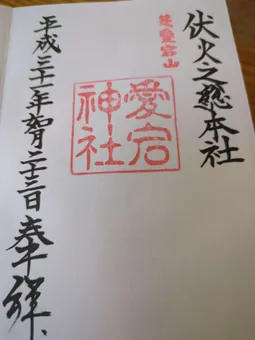 伏火之総本社
愛宕山
愛宕
神社
平成三十一年如月二十三日奉拝